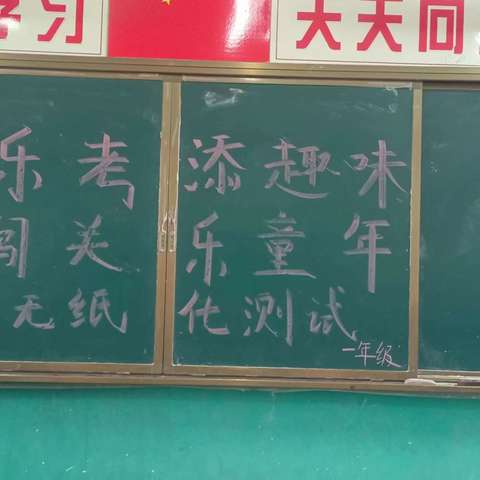 学习 天天向
乐考 添趣味
闯关 乐童年
无纸 化测试
一年级